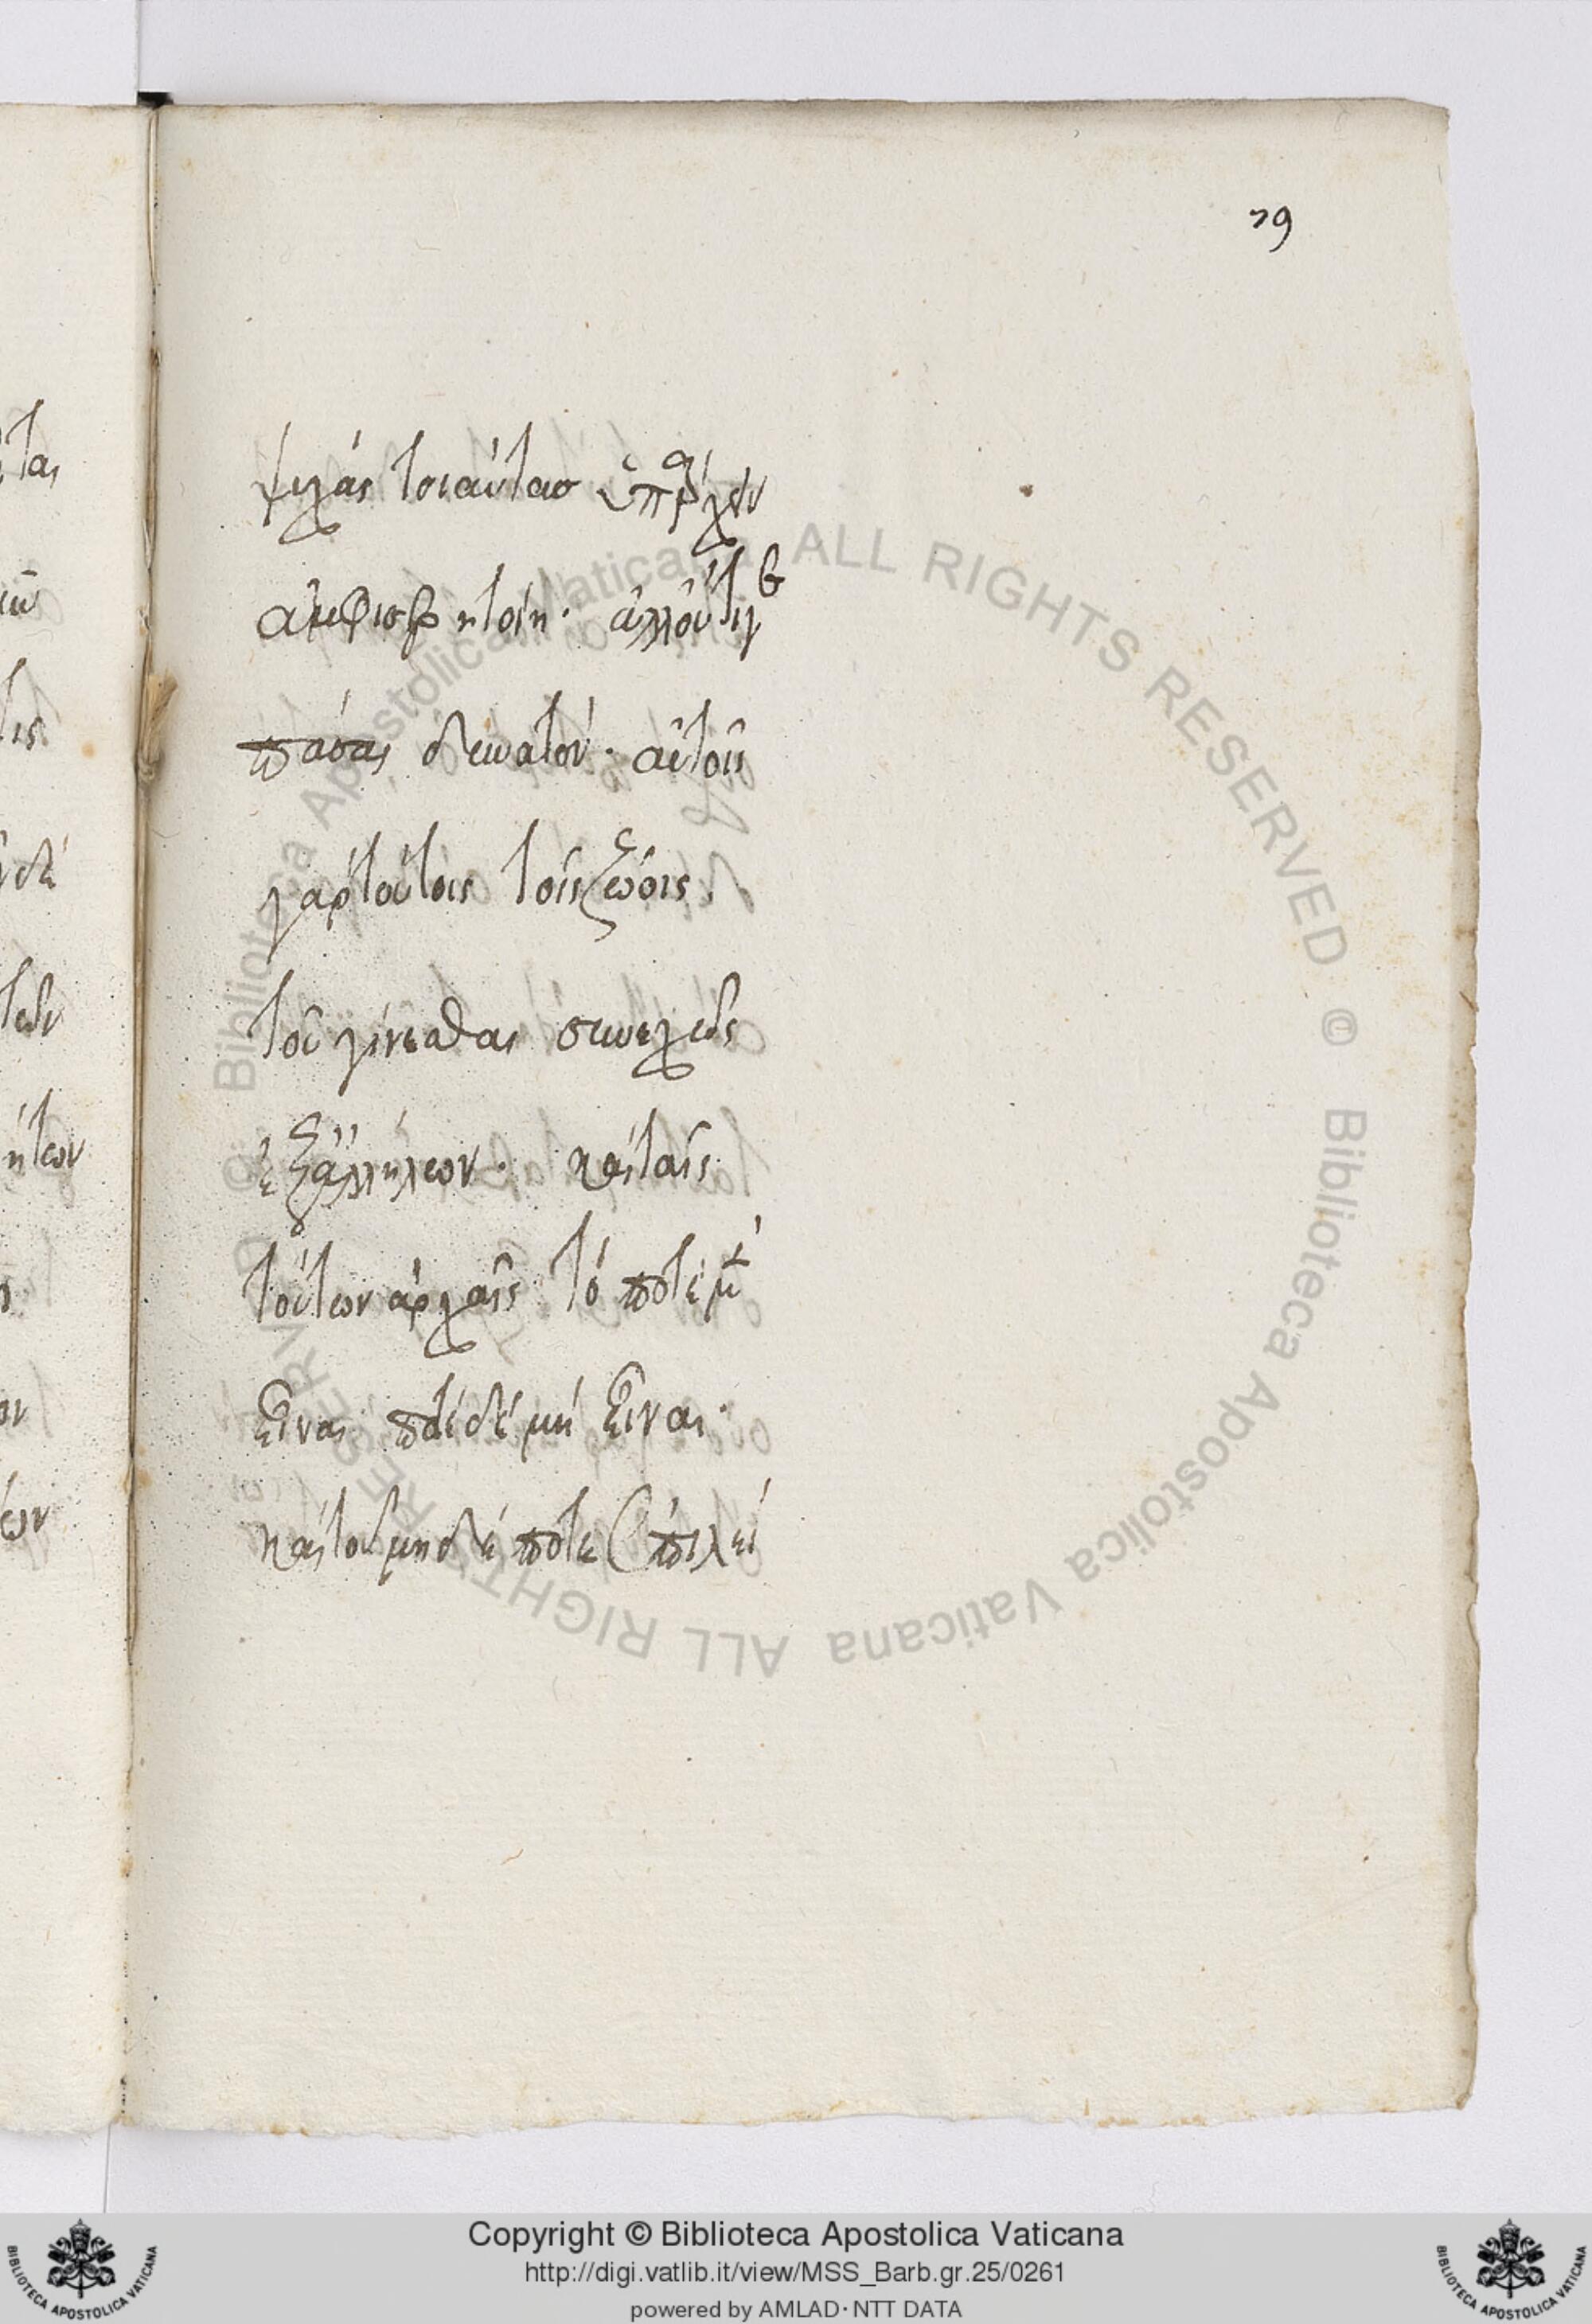 79
τας
ψιλάς τοιαύτασ ὑπάρχειν
ἀμφισβητοίη· ἀλλ' οὔτι γε
πάσας δυνατόν· αὐτοῖς
γὰρ τούτοις τοῖς ζώοις
τοῦ γίνεσθαι συνεχῶς
ἐξ ἀλλήλων· καὶ ταῖς
τούτων ἀρχαῖς τὸ ποτὲ μὲν
εἶναι ποτὲ δὲ μὴ εἶναι·
καὶ τοῦ μηδέποτε ἐπιλεί
Biblioteca Apostolica Vaticana ALL RIGHTS RESERVED © Biblioteca Apostolica Vaticana ALL RIGHTS RESERVED ©
Copyright © Biblioteca Apostolica Vaticana
http://digi.vatlib.it/view/MSS_Barb.gr.25/0261
powered by AMLAD·NTT DATA
BIBLIOTECA APOSTOLICA VATICANA
BIBLIOTECA APOSTOLICA VATICANA